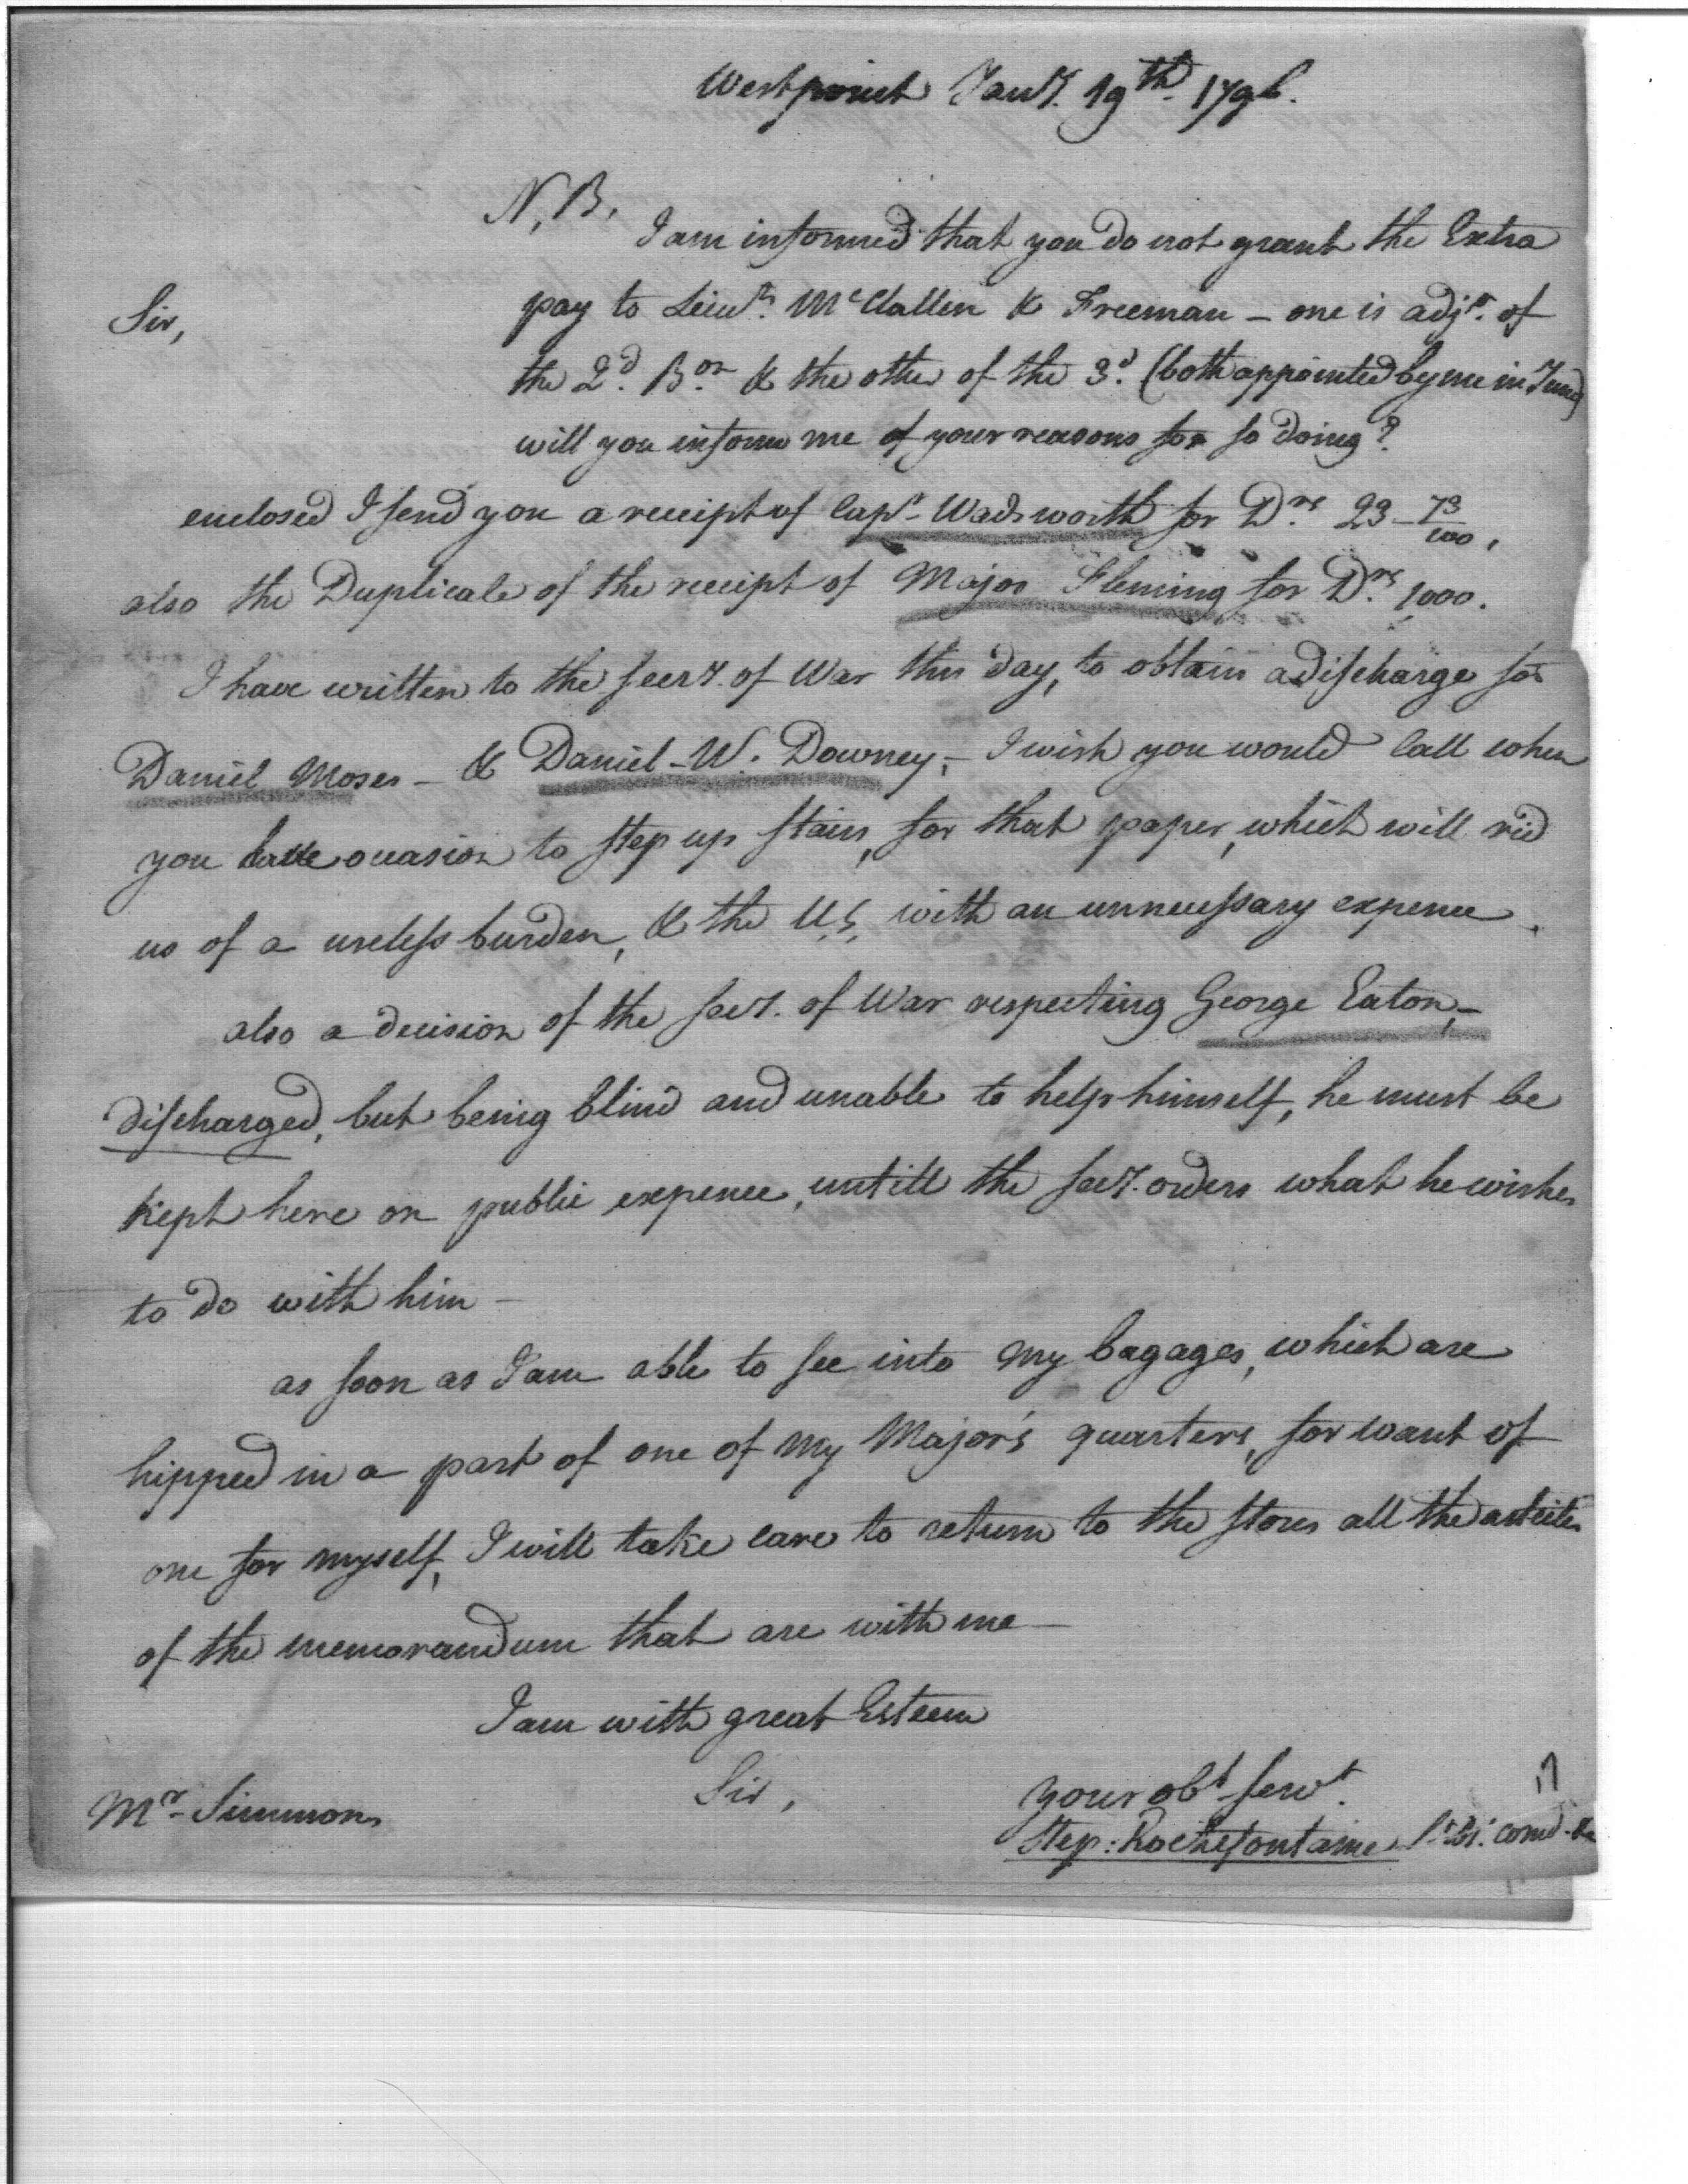 Westpoint Jany. 19th 1796.
N.B.
I am informed that you do not grant the Extra
pay to Lieuts. McClallen & Freeman – one is adjt. of
Sir,
the 2d. Bon & the other of the 3d. (both appointed by me in June)
will you inform me of your reasons for so doing?
enclosed I send you a receipt of Capt. Wadsworth for Drs. 23 73/100,
also the Duplicate of the receipt of Major Fleming for Drs. 1000.
I have written to the secry. of War this day, to obtain a discharge for
Daniel Moses – & Daniel – W. Downey, – I wish you would Call when
you have occasion to step up stairs, for that paper, which will rid
us of a useless burden, & the U.S. with an unnecessary expence.
also a decision of the secy. of War respecting George Eaton, –
discharged, but being blind and unable to help himself, he must be
kept here on public expence, untill the secy. orders what he wishes
to do with him –
as soon as I am able to see into my bagages, which are
hipped in a part of one of my Major's quarters, for want of
one for myself, I will take care to return to the stores all the articles
of the memorandum that are with me –
I am with great Esteem
Sir,
your obt servt.
Mr. Simmons
Step: Rochefontaine Lt. Col. comdt.